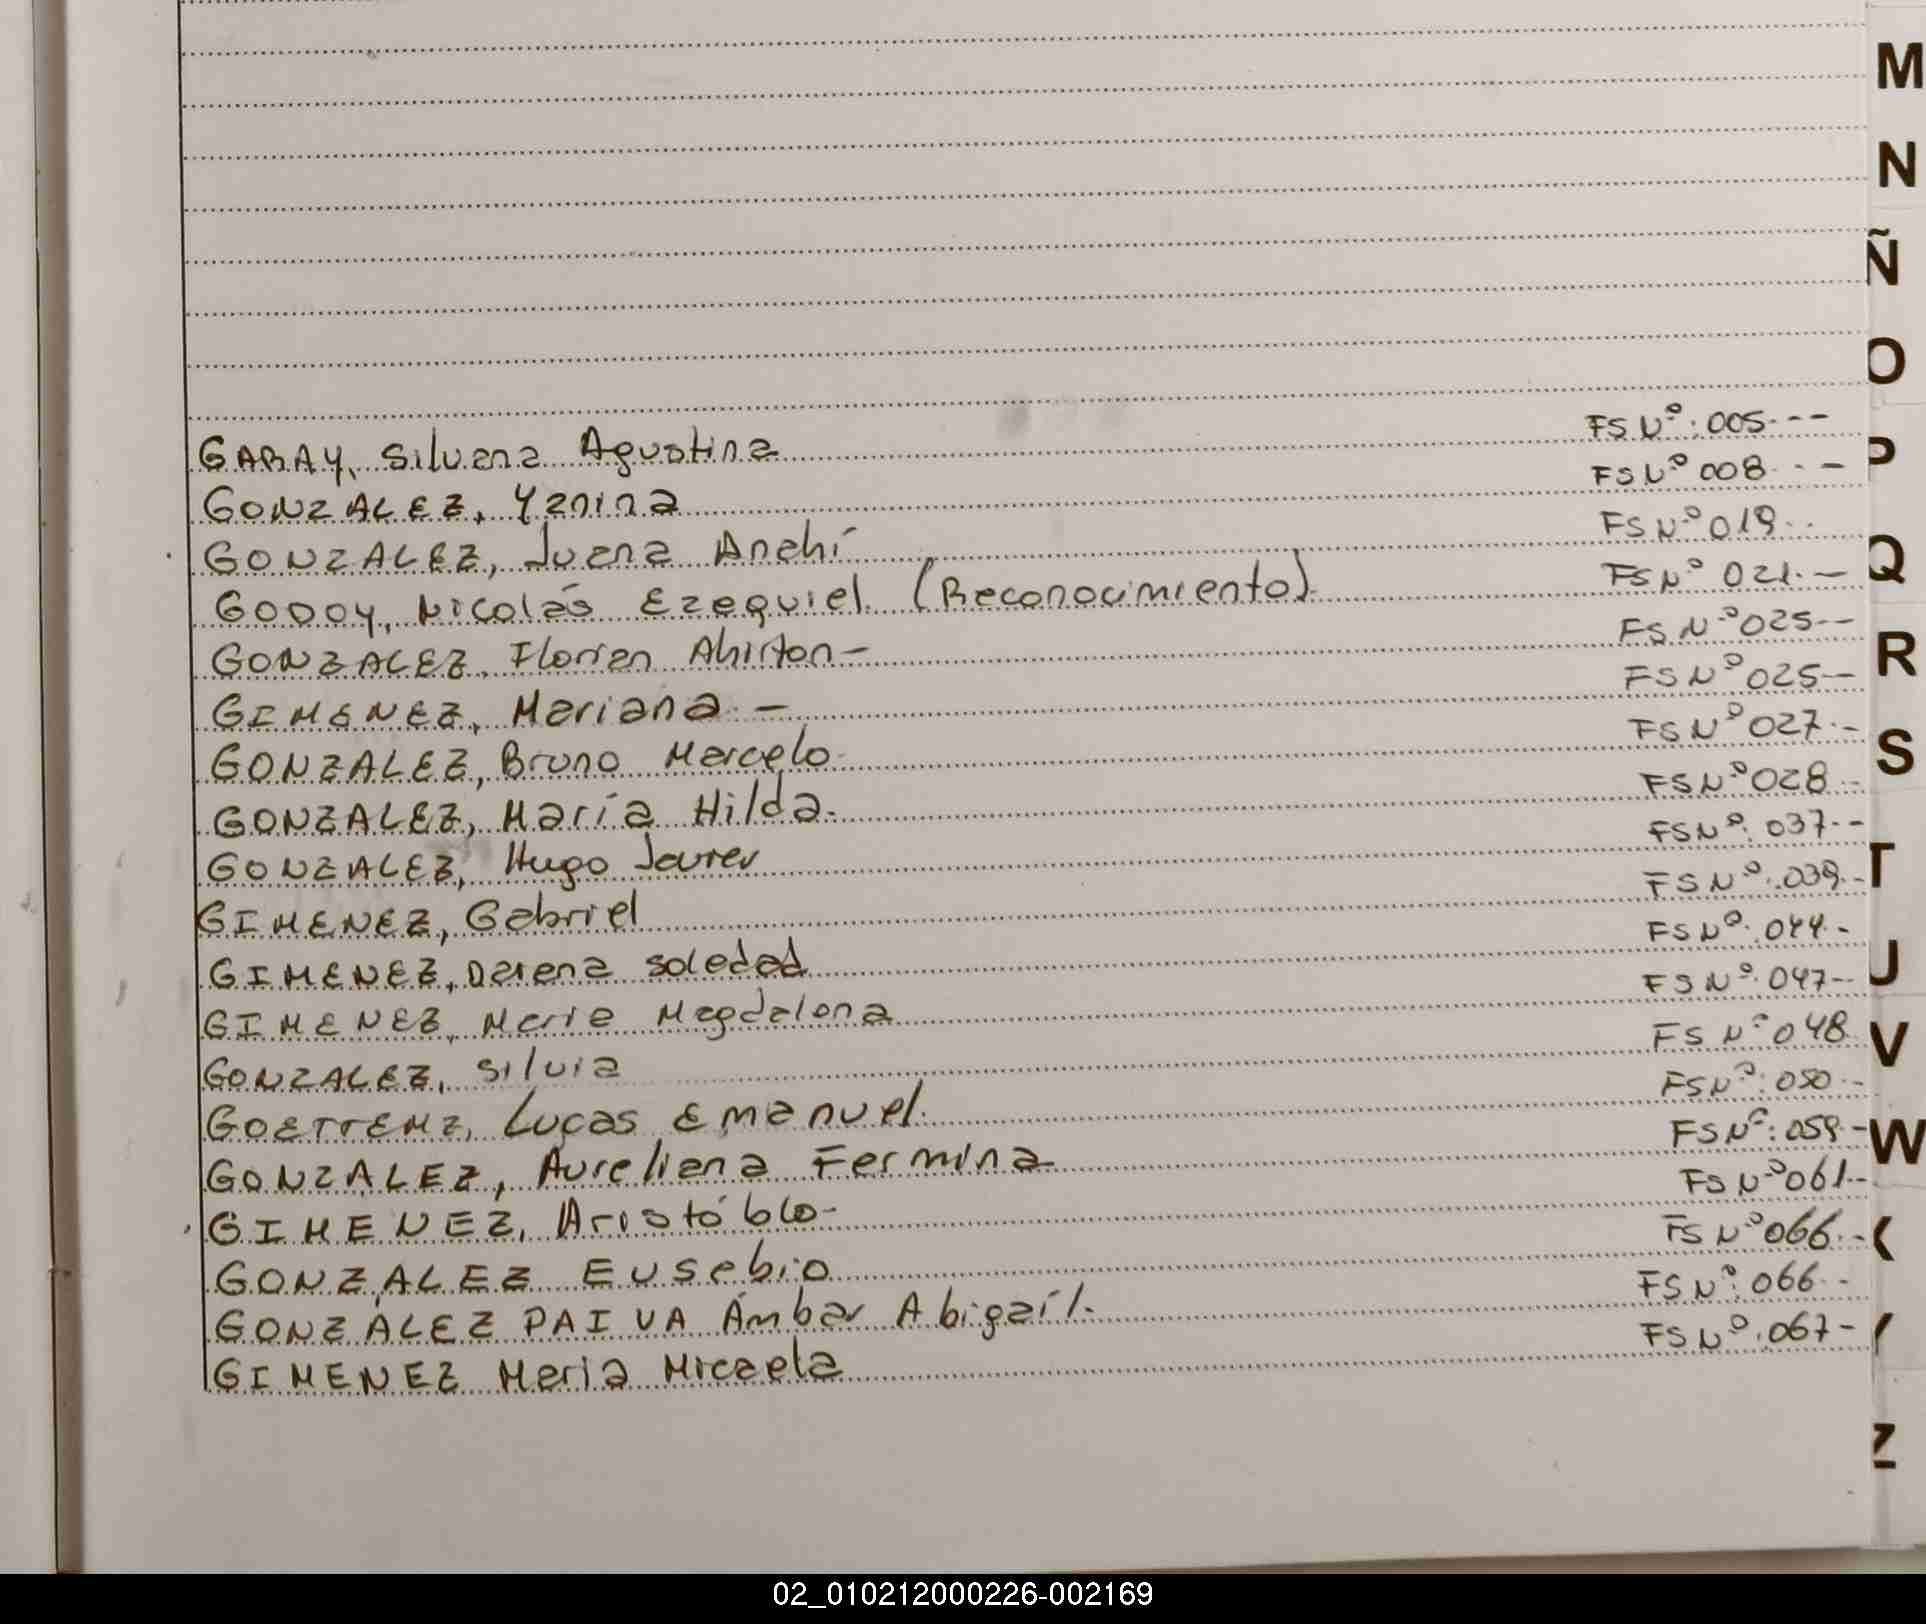 GARAY, Silvana Agustina FS Nº: 005---
GONZALEZ, Yanina FS Nº 008---
GONZALEZ, Juana Anahí FS Nº 019..
GODOY, Nicolás Ezequiel (Reconocimiento). FS Nº 021.-
GONZALEZ, Florian Ahirton- FS Nº 025--
GIMENEZ, Mariana.- FS Nº 025--
GONZALEZ, Bruno Marcelo. FS Nº 027.-
GONZALEZ, María Hilda. FS Nº 028..
GONZALEZ, Hugo Javier FS Nº: 037.--
GIMENEZ, Gabriel FS Nº: 039.-
GIMENEZ, Daiena Soledad FS Nº: 044.-
GIMENEZ, Maria Magdalena FS Nº: 047--
GONZALEZ, Silvia FS Nº 048
Lucas Emanuel. FS Nº: 050.-
GONZALEZ, Aureliana Fermina FS Nº: 059-
GIMENEZ, Aristóblo- FS Nº 061--
GONZALEZ Eusebio FS Nº 066.-
GONZALEZ PAIVA Ámbar Abigaíl. FS Nº: 066.-
GIMENEZ Maria Micaela FS Nº: 067-
M
N
Ñ
O
P
Q
R
S
T
U
V
W
X
Y
Z
02_010212000226-002169